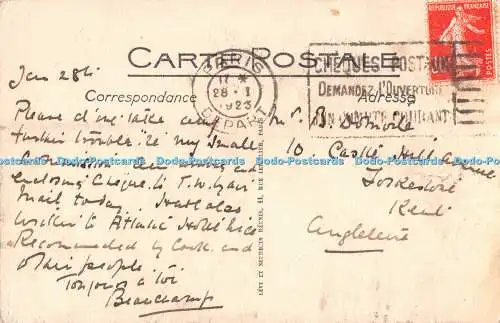 CARTE POSTALE
Jan 28th
Correspondance
Adresse
PARIS
17 *
28 - I
1923
DEPART
CHEQUES POSTAUX
DEMANDEZ L'OUVERTURE
UN COMPTE COURANT
REPUBLIQUE FRANÇAISE
POSTES
Please don't take any
further trouble re my small
and
enclosing Cheque to
mail today. Have also
to Atlantic Hotel
Recommended by Cook and
other people
Toujours à toi
Beauchamp
B.
10 Castle Hill Avenue
Folkestone
Kent
Angleterre
LÉVY ET NEURDEIN RÉUNIS, 44, RUE LETELLIER, PARIS
Dodo-Postcards Dodo-Postcards Dodo-Postcards Dodo-Postcards Dodo-Postcards